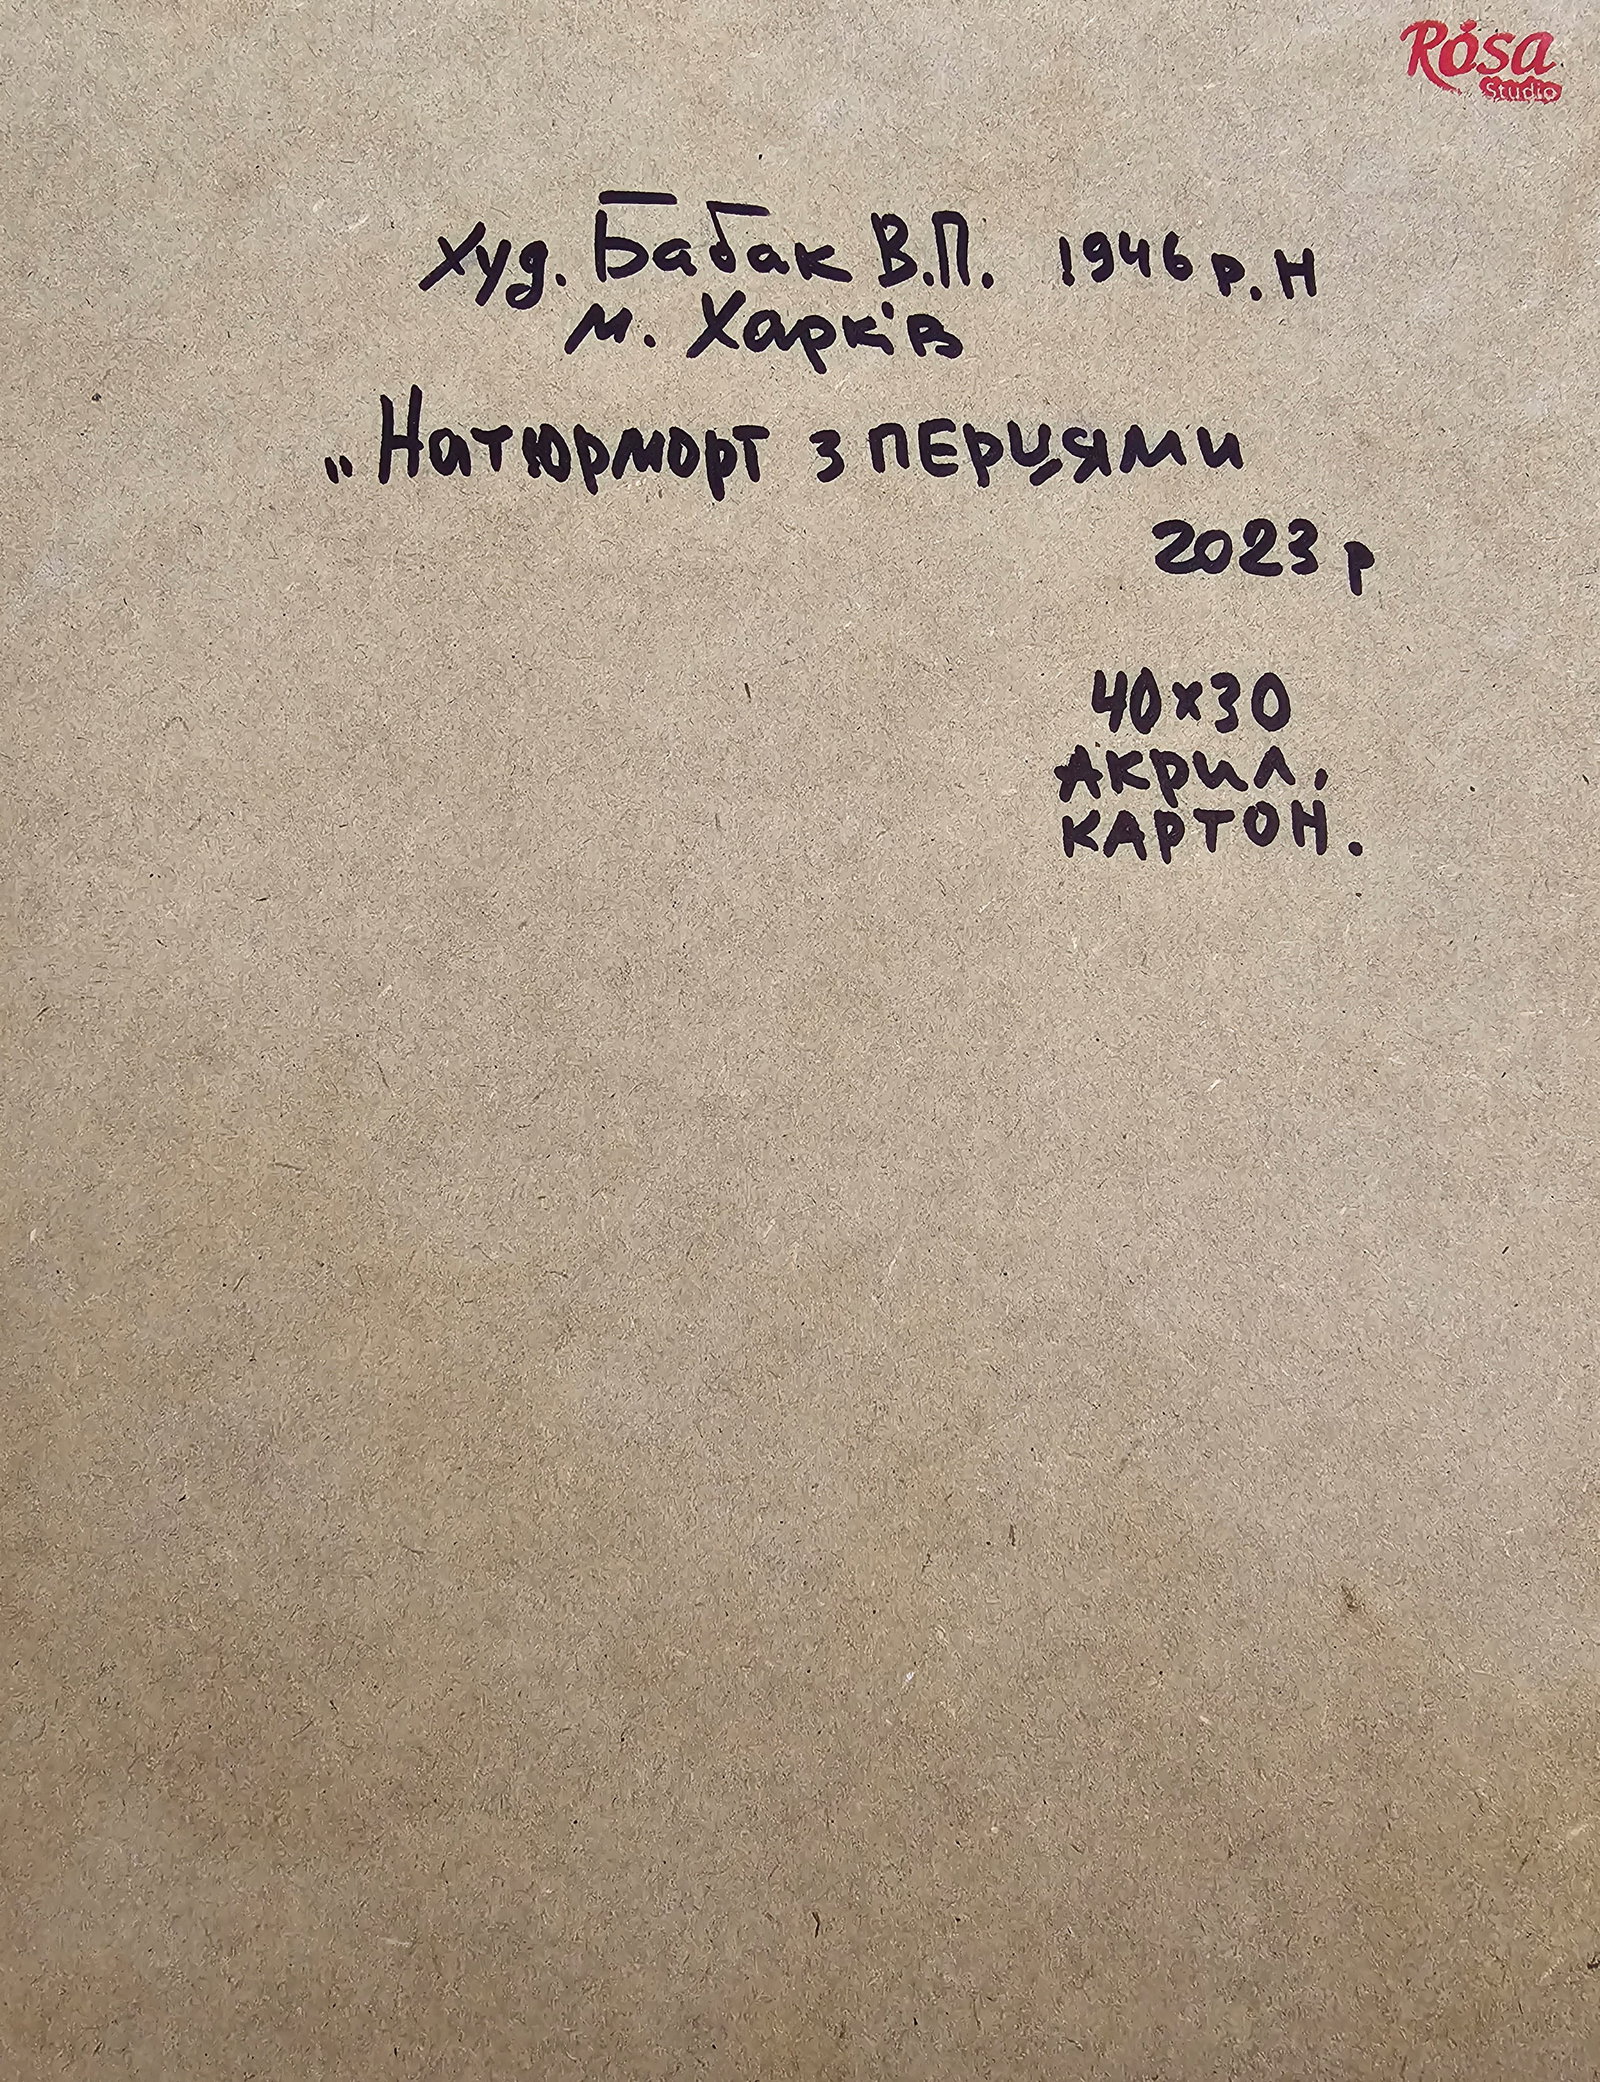 Rósa
Studio
худ. Бабак В.П. 1946 р. н
м. Харків
„Натюрморт з перцями
2023 р
40x30
Акрил,
КАРТОН.